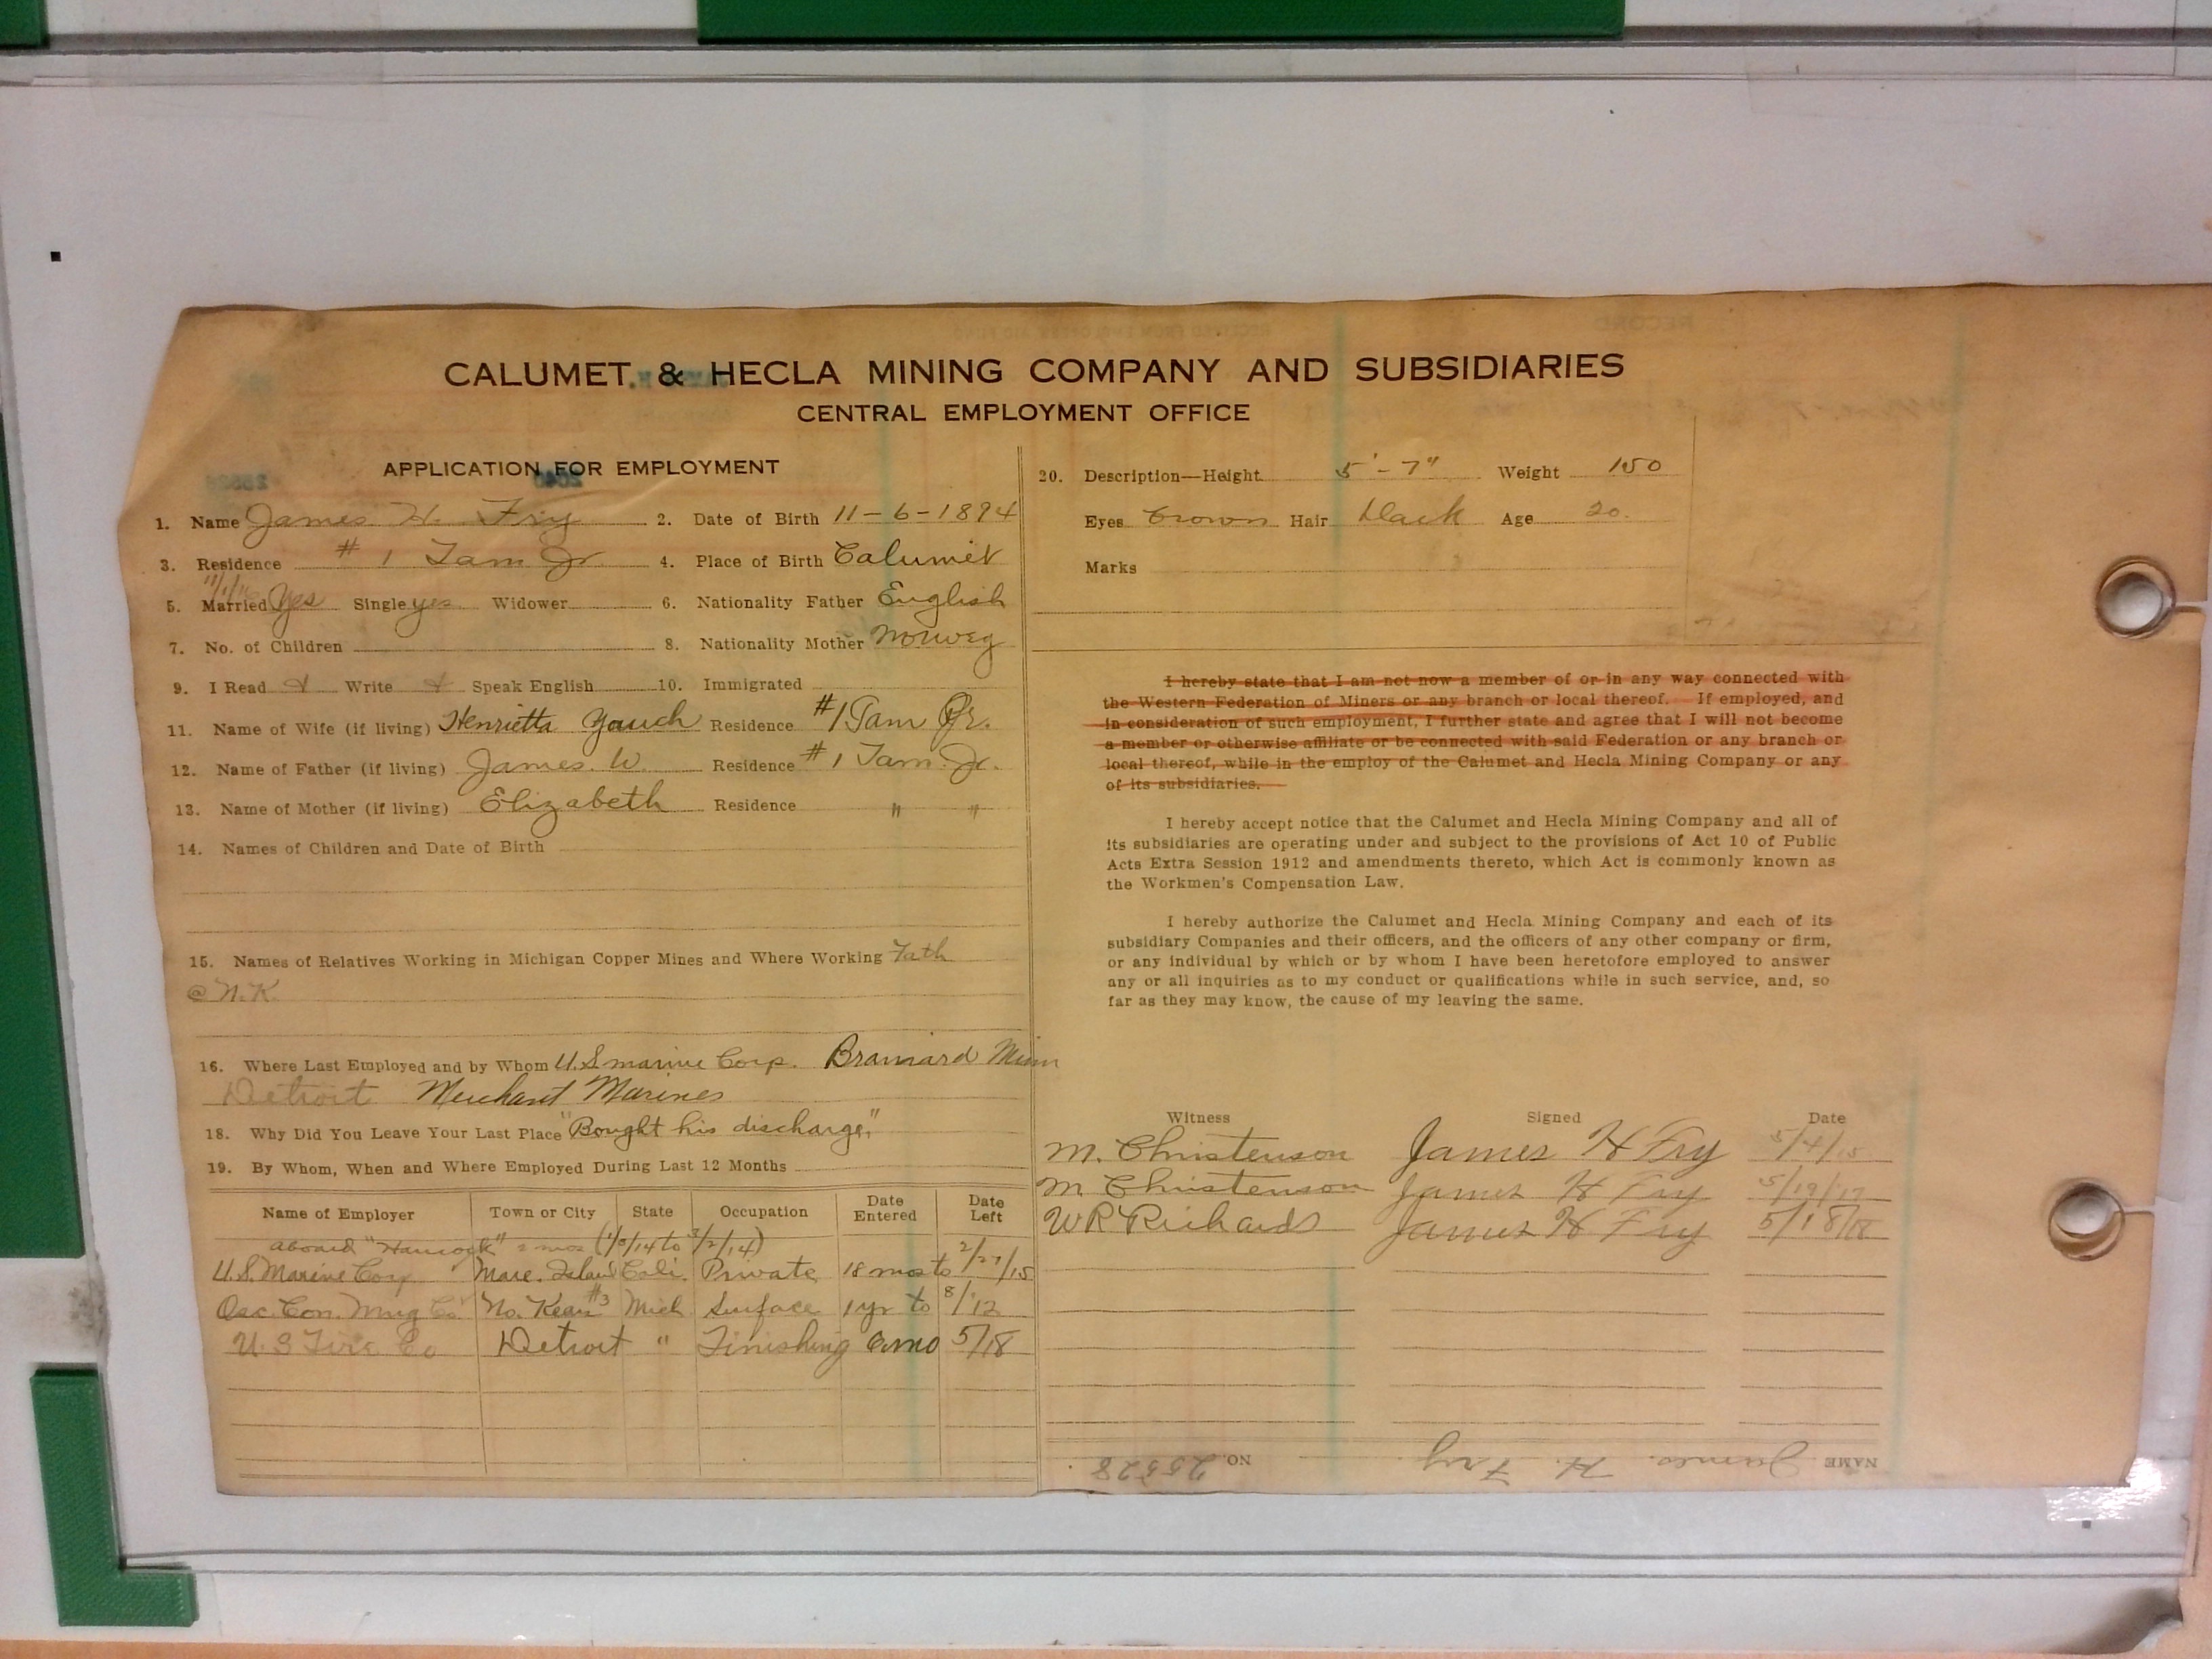 CALUMET & HECLA MINING COMPANY AND SUBSIDIARIES
CENTRAL EMPLOYMENT OFFICE
APPLICATION FOR EMPLOYMENT
1. Name James H. Fry 2. Date of Birth 11-6-1894
3. Residence #1 Tam Jr. 4. Place of Birth Calumet
5. Married Yes Single yes Widower 6. Nationality Father English
7. No. of Children 8. Nationality Mother Norweg
9. I Read Write Speak English 10. Immigrated
11. Name of Wife (if living) Henrietta Yauch Residence #1 Tam Jr.
12. Name of Father (if living) James W. Residence #1 Tam. Jr.
13. Name of Mother (if living) Elizabeth Residence " "
14. Names of Children and Date of Birth
15. Names of Relatives Working in Michigan Copper Mines and Where Working Fath
@ N.K.
16. Where Last Employed and by Whom U.S marine Corp. Brainard Minn
Detroit Merchant Marines
18. Why Did You Leave Your Last Place "Bought his discharge,"
19. By Whom, When and Where Employed During Last 12 Months
Name of Employer Town or City State Occupation Date Entered Date Left
aboard "Hancock" 2 mos to 3/2/14)
U.S. Marine Corp Mare. Island Cali. Private 18 mos to 2/27/15
Osc. Con. Mng Co No. Kear #3 Mich Surface 1 yr to 8/12
U.S Tire Co Detroit " Finishing mo 5/18
20. Description—Height 5'-7" Weight 150
Eyes brown Hair black Age 20.
Marks
I hereby state that I am not now a member of or in any way connected with
the Western Federation of Miners or any branch or local thereof. If employed, and
in consideration of such employment, I further state and agree that I will not become
a member or otherwise affiliate or be connected with said Federation or any branch or
local thereof, while in the employ of the Calumet and Hecla Mining Company or any
of its subsidiaries.
I hereby accept notice that the Calumet and Hecla Mining Company and all of
its subsidiaries are operating under and subject to the provisions of Act 10 of Public
Acts Extra Session 1912 and amendments thereto, which Act is commonly known as
the Workmen's Compensation Law.
I hereby authorize the Calumet and Hecla Mining Company and each of its
subsidiary Companies and their officers, and the officers of any other company or firm,
or any individual by which or by whom I have been heretofore employed to answer
any or all inquiries as to my conduct or qualifications while in such service, and, so
far as they may know, the cause of my leaving the same.
Witness Signed Date
M. Christenson James H Fry 5/4/15
M Christenson James H Fry 5/19/17
W R Richards James H Fry 5/18/18
NAME James H. Fry NO. 25528